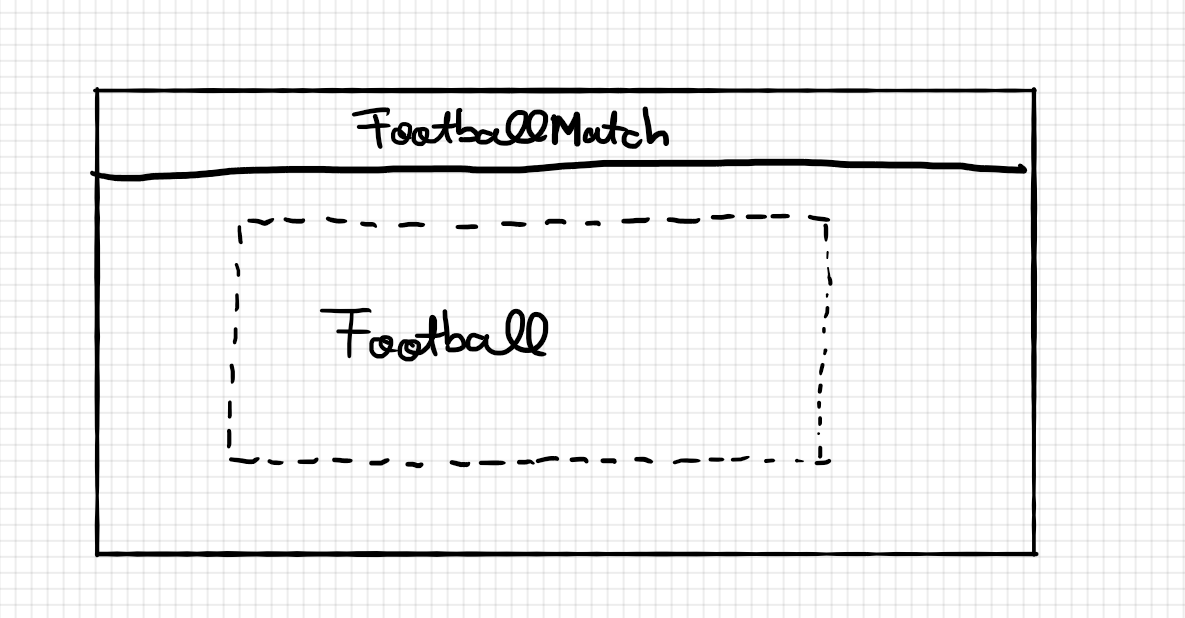 FootballMatch
Football